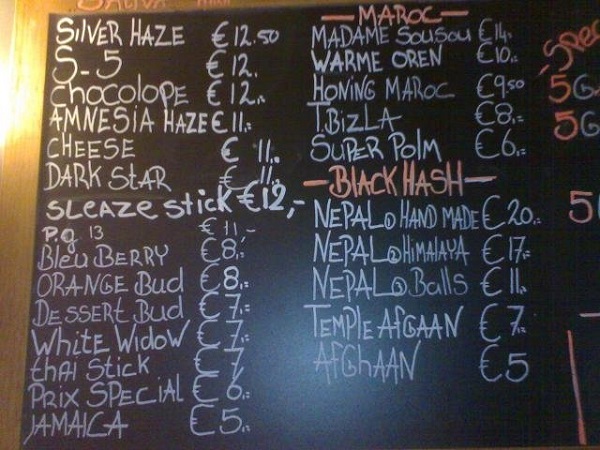 SATIVA
SILVER HAZE €12.50
S-5 €12.
Chocolope €12.-
AMNESIA HAZE €11.-
CHEESE € 11.-
DARK STAR € 11.-
SLEAZE STICK €12,-
P.g 13 €11,-
Bleu BERRY €8.-
ORANGE Bud €8.-
DESSERT Bud €7.-
White Widow €7.-
thai Stick €7
PRIX SPECIAL €6.-
JAMAICA €5.-
— MAROC —
MADAME SOUSOU €14.-
WARME OREN €10.-
HONING MAROC €9.50
T.BizLA €8.-
SUPER POLM €6.-
— BLACK HASH —
NEPAL① HAND MADE €20.-
NEPAL② HiMALAYA €17.-
NEPAL③ Balls €11.-
TEMPLE AFGAAN €7.-
AFGHAAN €5
5G
5G
5